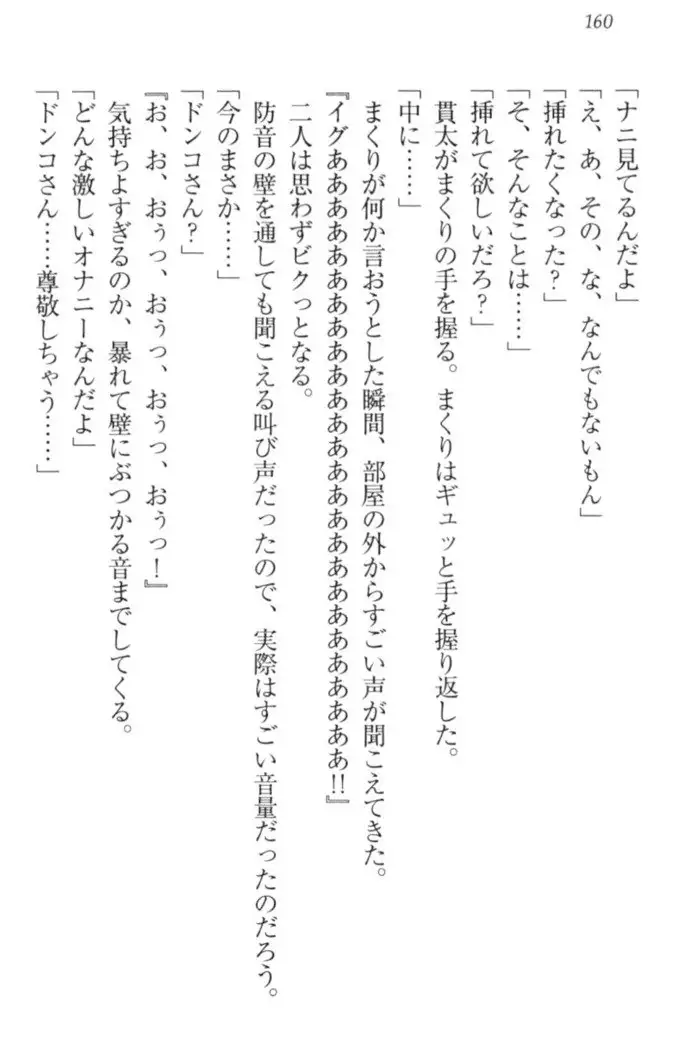 160
「ナニ見てるんだよ」
「え、あ、その、な、なんでもないもん」
「挿れたくなった?」
「そ、そんなことは……」
「挿れて欲しいだろ?」
貫太がまくりの手を握る。まくりはギュッと手を握り返した。
「中に……」
まくりが何か言おうとした瞬間、部屋の外からすごい声が聞こえてきた。
『イグああああああああああああああああああああああああああああ!!』
二人は思わずビクっとなる。
防音の壁を通しても聞こえる叫び声だったので、実際はすごい音量だったのだろう。
「今のまさか……」
「ドンコさん?」
『お、お、おぅっ、おぅっ、おぅっ、おぅっ!』
気持ちよすぎるのか、暴れて壁にぶつかる音までしてくる。
「どんな激しいオナニーなんだよ」
「ドンコさん……尊敬しちゃう……」